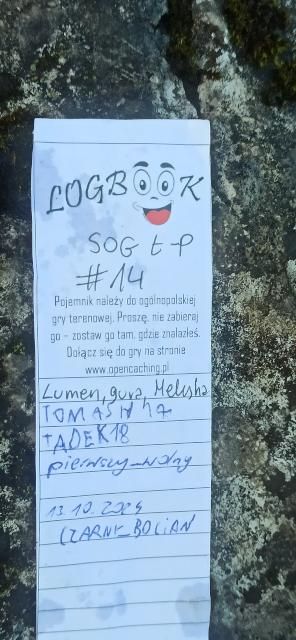 LOGBOOK
SOG t-P
#14
Pojemnik należy do ogólnopolskiej
gry terenowej. Proszę, nie zabieraj
go - zostaw go tam, gdzie znalazłeś.
Dołącz się do gry na stronie
www.opencaching.pl
Lumen, gura, Melysha
TADEK18
pierwszy_wolny
13.10.2024
CZARNY_BOCIAN